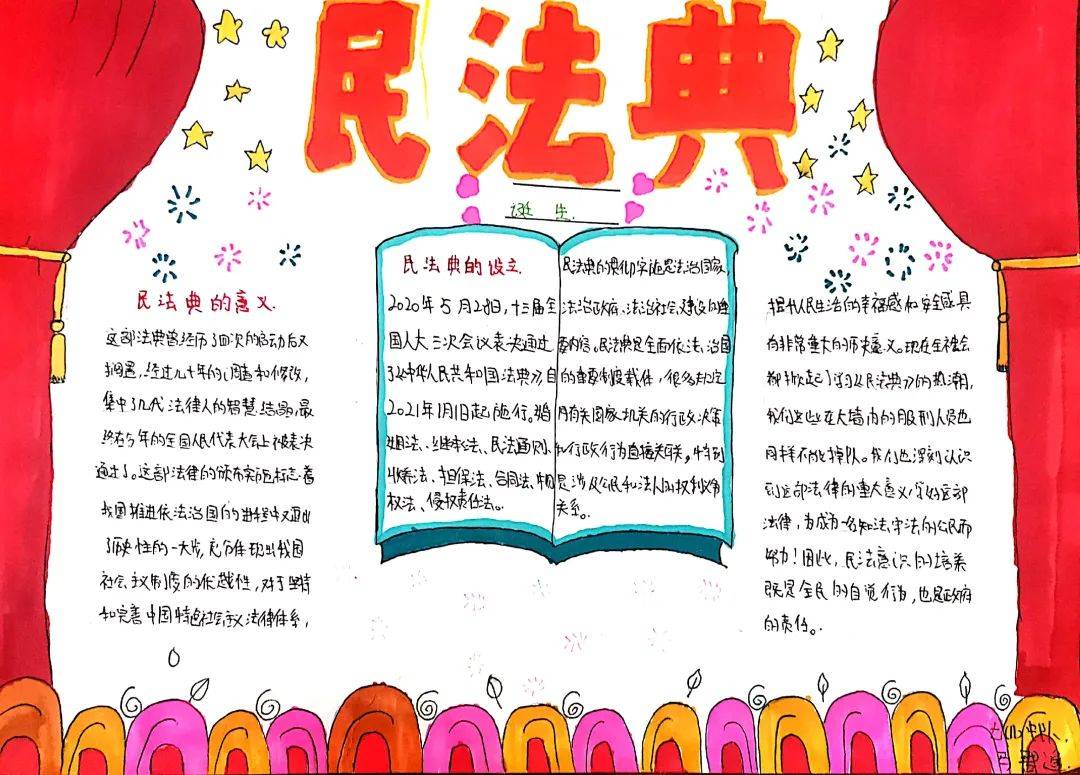 民法典
诞生
民法典的意义.
这部法典曾经历了四次的启动后又
搁置,经过几十年的调查和修改,
集中了几代法律人的智慧结晶,最
终在今年的全国人民代表大会上被表决
通过了。这部法律的颁布实施标志着
我国推进依法治国的进程中又迈出
了历史性的一大步,充分体现出我国
社会主义制度的优越性,对于坚持
和完善中国特色社会主义法律体系,
民法典的设立.
2020年5月28日,十三届全
国人大三次会议表决通过
了《中华人民共和国法典》,自
2021年1月1日起施行。婚
姻法、继承法、民法通则、
收养法、担保法、合同法、物
权法、侵权责任法。
民法典的颁布实施是法治国家、
法治政府、法治社会建设的重
要内容。民法典是全面依法治国
的重要制度载体,很多规定
同有关国家机关的行政决策
和行政行为直接关联,特别
是涉及公民和法人的权利义务
关系。
提升人民生活的幸福感和安全感具
有非常重大的历史意义。现在全社会
都掀起了学习《民法典》的热潮,
我们这些在大墙内的服刑人员也
同样不能掉队。我们也深刻认识
到这部法律的重大意义,学好这部
法律,为成为一名知法、守法的公民而
努力!因此,民法意识的培养
既是全民的自觉行为,也是政府
的责任。